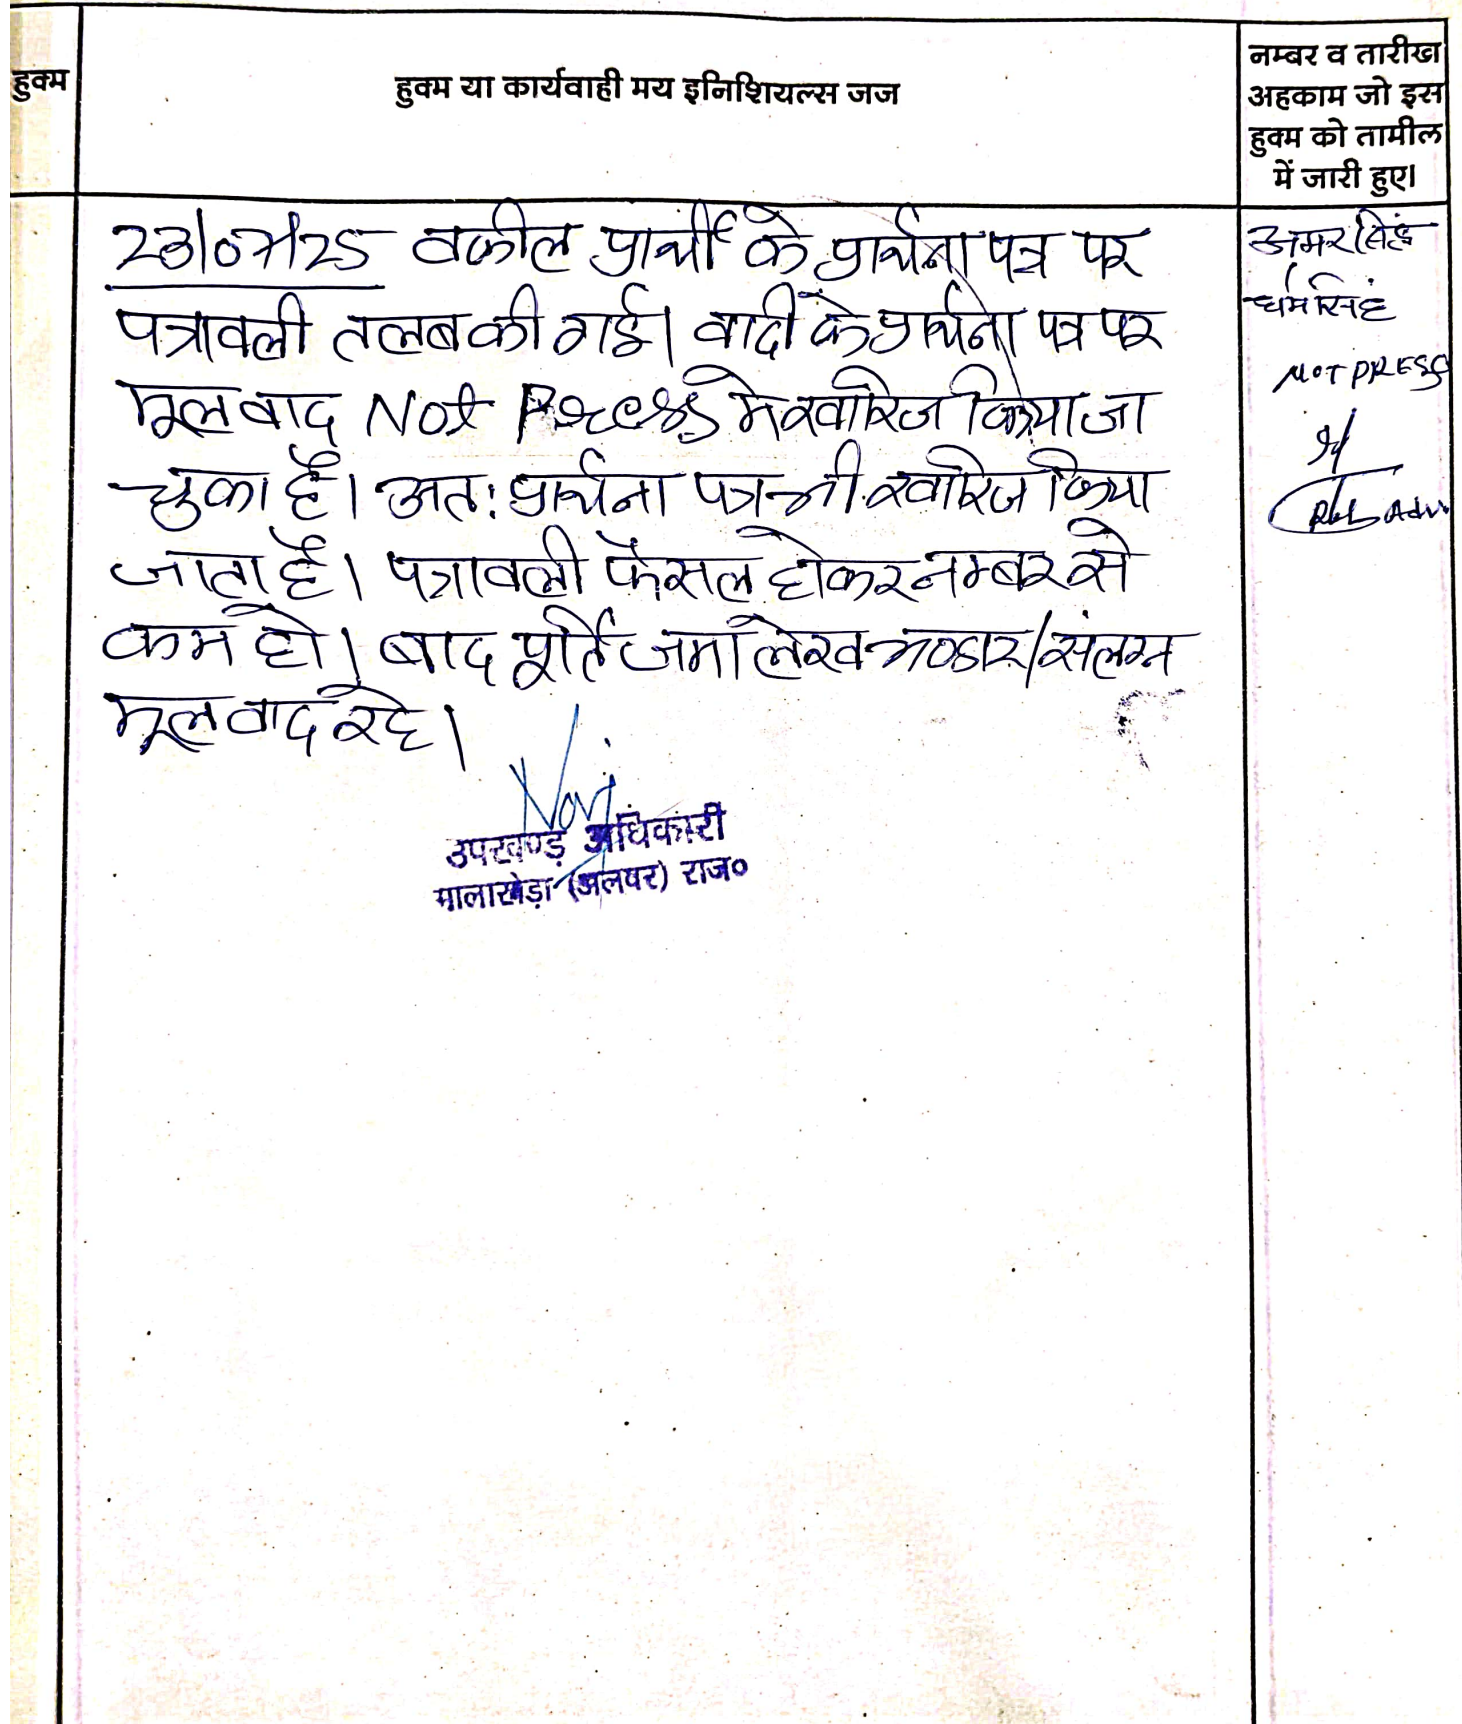 हुक्म
हुक्म या कार्यवाही मय इनिशियल्स जज
नम्बर व तारीख
अहकाम जो इस
हुक्म को तामील
में जारी हुए।
23/07/25 वकील प्रार्थी के प्रार्थना पत्र पर
पत्रावली तलब की गई। वादी के प्रार्थना पत्र पर
मूल वाद Not Press में खारिज किया जा
चुका है। अतः प्रार्थना पत्र भी खारिज किया
जाता है। पत्रावली फैसल होकर नम्बर से
कम हो। बाद पूर्ति जमा लेख भण्डार/संलग्न
मूल वाद रहे।
उपखण्ड़ अधिकारी
मालाखेड़ा (अलवर) राज०
अमरसिंह
धर्मसिंह
NOT PRESS
Adv